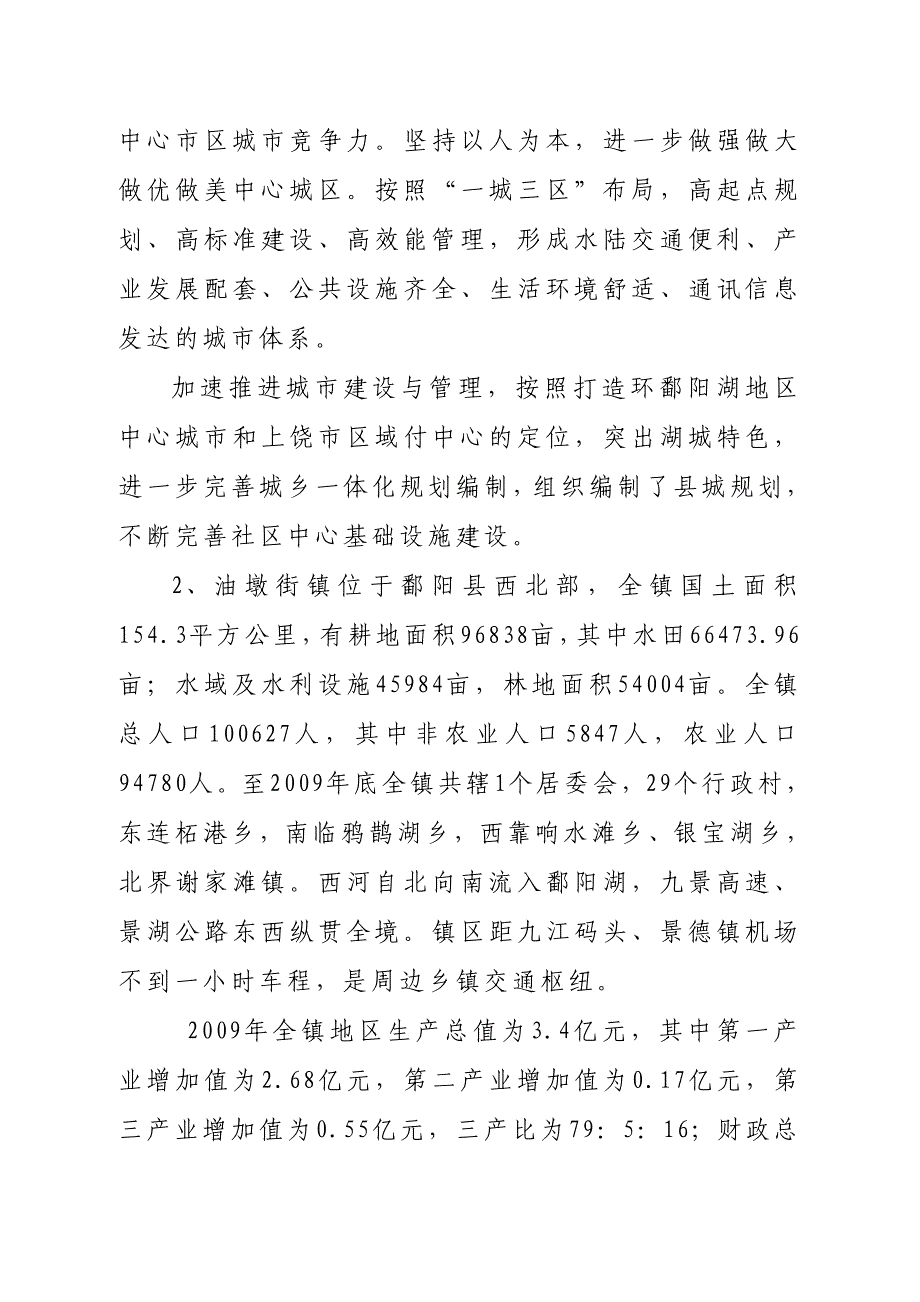 中心市区城市竞争力。坚持以人为本，进一步做强做大
做优做美中心城区。按照“一城三区”布局，高起点规
划、高标准建设、高效能管理，形成水陆交通便利、产
业发展配套、公共设施齐全、生活环境舒适、通讯信息
发达的城市体系。
加速推进城市建设与管理，按照打造环鄱阳湖地区
中心城市和上饶市区域付中心的定位，突出湖城特色，
进一步完善城乡一体化规划编制，组织编制了县城规划，
不断完善社区中心基础设施建设。
2、油墩街镇位于鄱阳县西北部，全镇国土面积
154.3平方公里，有耕地面积96838亩，其中水田66473.96
亩；水域及水利设施45984亩，林地面积54004亩。全镇
总人口100627人，其中非农业人口5847人，农业人口
94780人。至2009年底全镇共辖1个居委会，29个行政村，
东连柘港乡，南临鸦鹊湖乡，西靠响水滩乡、银宝湖乡，
北界谢家滩镇。西河自北向南流入鄱阳湖，九景高速、
景湖公路东西纵贯全境。镇区距九江码头、景德镇机场
不到一小时车程，是周边乡镇交通枢纽。
2009年全镇地区生产总值为3.4亿元，其中第一产
业增加值为2.68亿元，第二产业增加值为0.17亿元，第
三产业增加值为0.55亿元，三产比为79：5：16；财政总